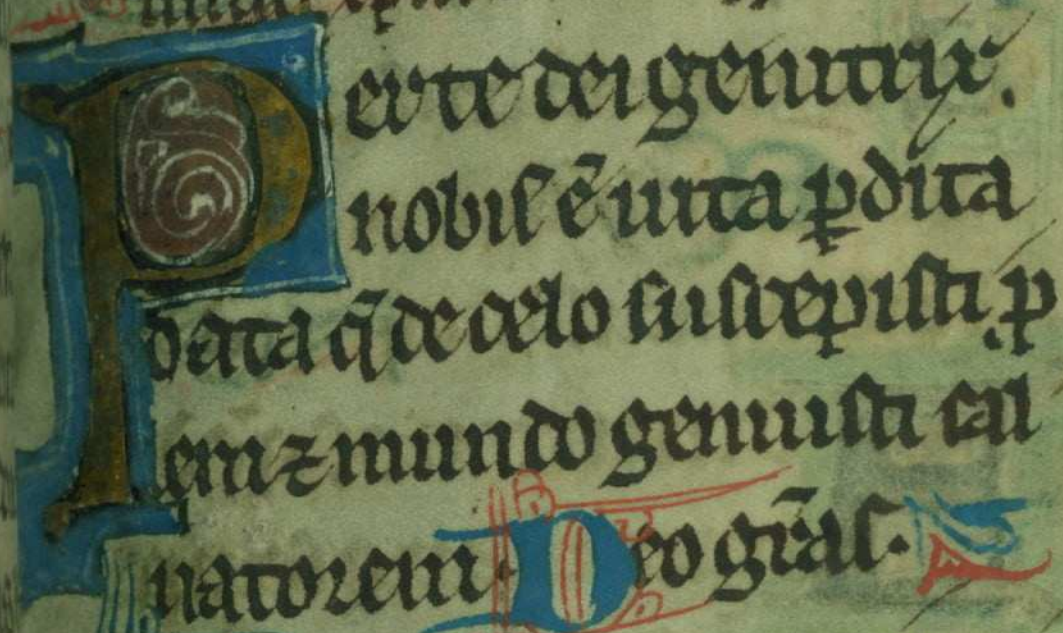 Per te dei genitrix.
nobiſ ē uita ꝑdita
data q̄ de celo ſuſcepiſti. ꝓ
lem ⁊ mundo genuiſti ſal
uatorem. Deo gr̄aſ.